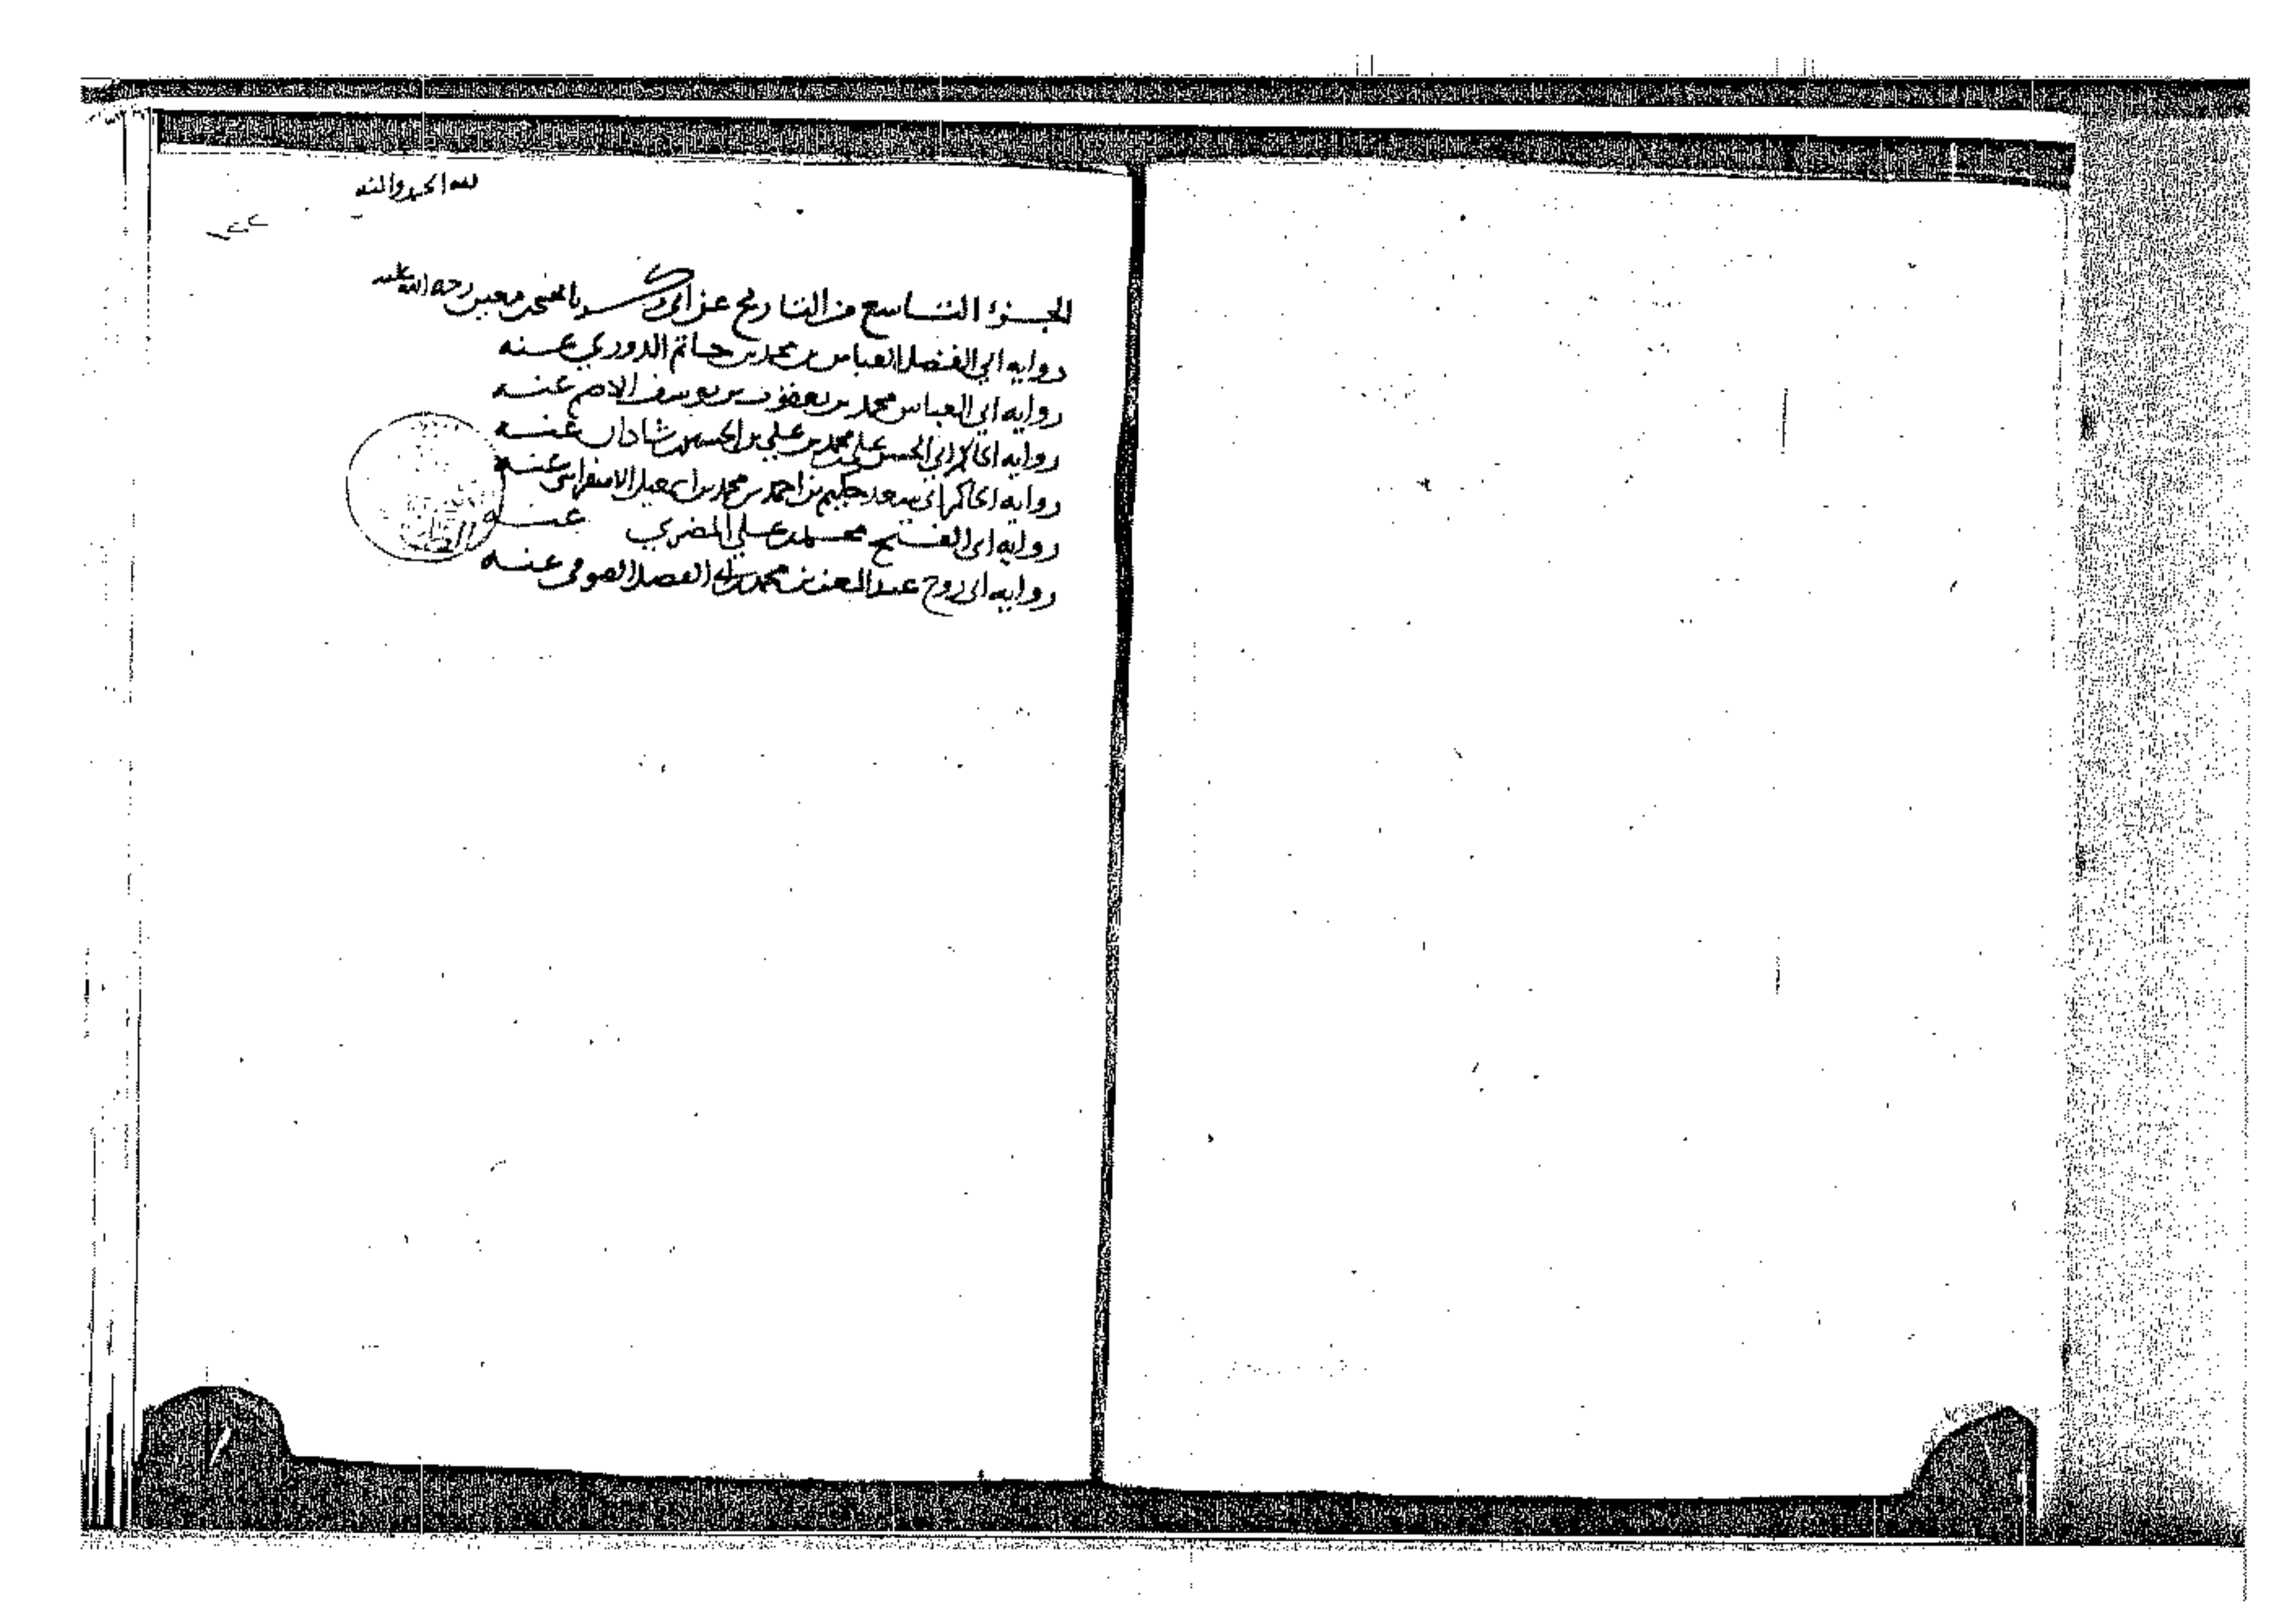 لله الحمد والمنه
الجزؤ التاسع من التاريخ عن ابي زكريا يحيى بن معين رحمه الله عليه
روايه ابي الفضل العباس بن محمد بن حاتم الدوري عنه
روايه ابي العباس محمد بن يعقوب بن يوسف الاصم عنه
روايه الحاكم ابي الحسن علي بن محمد بن علي بن الحسين بن شاذان عنه
روايه الحاكم ابي سعد حكيم بن احمد بن محمد بن اسمعيل الاسفرايني عنه
روايه ابي الفتح محمد بن علي المضري عنه
روايه ابي روح عبد المعز بن محمد بن ابي الفضل الصوفي عنه